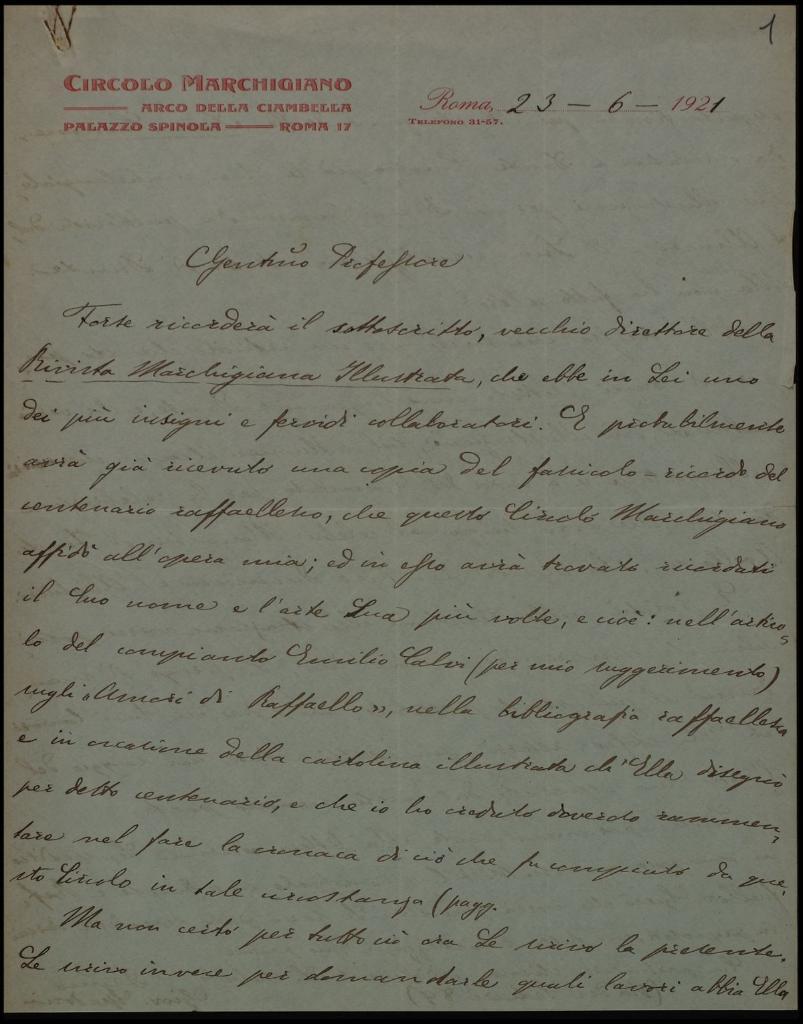 1
CIRCOLO MARCHIGIANO
ARCO DELLA CIAMBELLA
PALAZZO SPINOLA — ROMA 17
Roma, 23 — 6 — 1921
TELEFONO 31-57.
Gentmo Professore
Forse ricorderà il sottoscritto, vecchio direttore della
Rivista Marchigiana Illustrata, che ebbe in Lei uno
dei più insigni e fervidi collaboratori. E probabilmente
avrà già ricevuto una copia del fascicolo-ricordo del
centenario raffaellesco, che questo Circolo Marchigiano
affidò all'opera mia; ed in esso avrà trovato ricordati
il Suo nome e l'arte Sua più volte, e cioè: nell'artico=
lo del compianto Emilio Calvi (per mio suggerimento)
sugli «Amori di Raffaello», nella bibliografia raffaellesca
e in occasione della cartolina illustrata ch'Ella disegnò
per detto centenario, e che io ho creduto doveroso rammen=
tare nel fare la cronaca di ciò che fu compiuto da que=
sto Circolo in tale circostanza (pagg.
Ma non certo per tutto ciò ora Le scrivo la presente.
Le scrivo invece per domandarle quali lavori abbia Ella